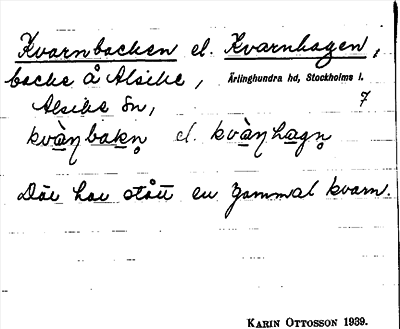 Kvarnbacken el. Kvarnhagen,
backe å Alsike, Ärlinghundra hd, Stockholms l.
Alsike sn, 7
kvàn̥bakn̥ el. kvàn̥hagn̥
Där har stått en gammal kvarn.
KARIN OTTOSSON 1939.